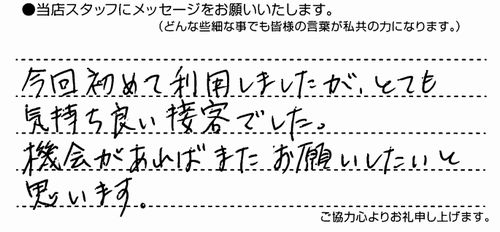 ●当店スタッフにメッセージをお願いいたします。
（どんな些細な事でも皆様の言葉が私共の力になります。）
今回初めて利用しましたが、とても
気持ち良い接客でした。
機会があればまたお願いしたいと
思います。
ご協力心よりお礼申し上げます。